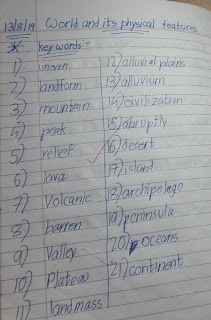 13/8/19 World and its physical features
* key words:-
1) uneven
2) landform
3) mountain
4) peak
5) relief
6) lava
7) Volcanic
8) barren
9) Valley
10) Plateau
11) landmass
12) alluvial plains
13) alluvium
14) civilization
15) abruptly
16) desert
17) island
18) archipelago
19) peninsula
20) oceans
21) continent